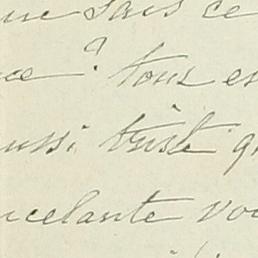 que sais ce
ce ? tous es
aussi triste q
ncelante vou